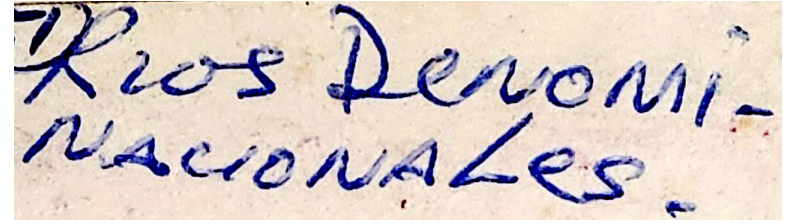 Rios Denomi-
nacionales.